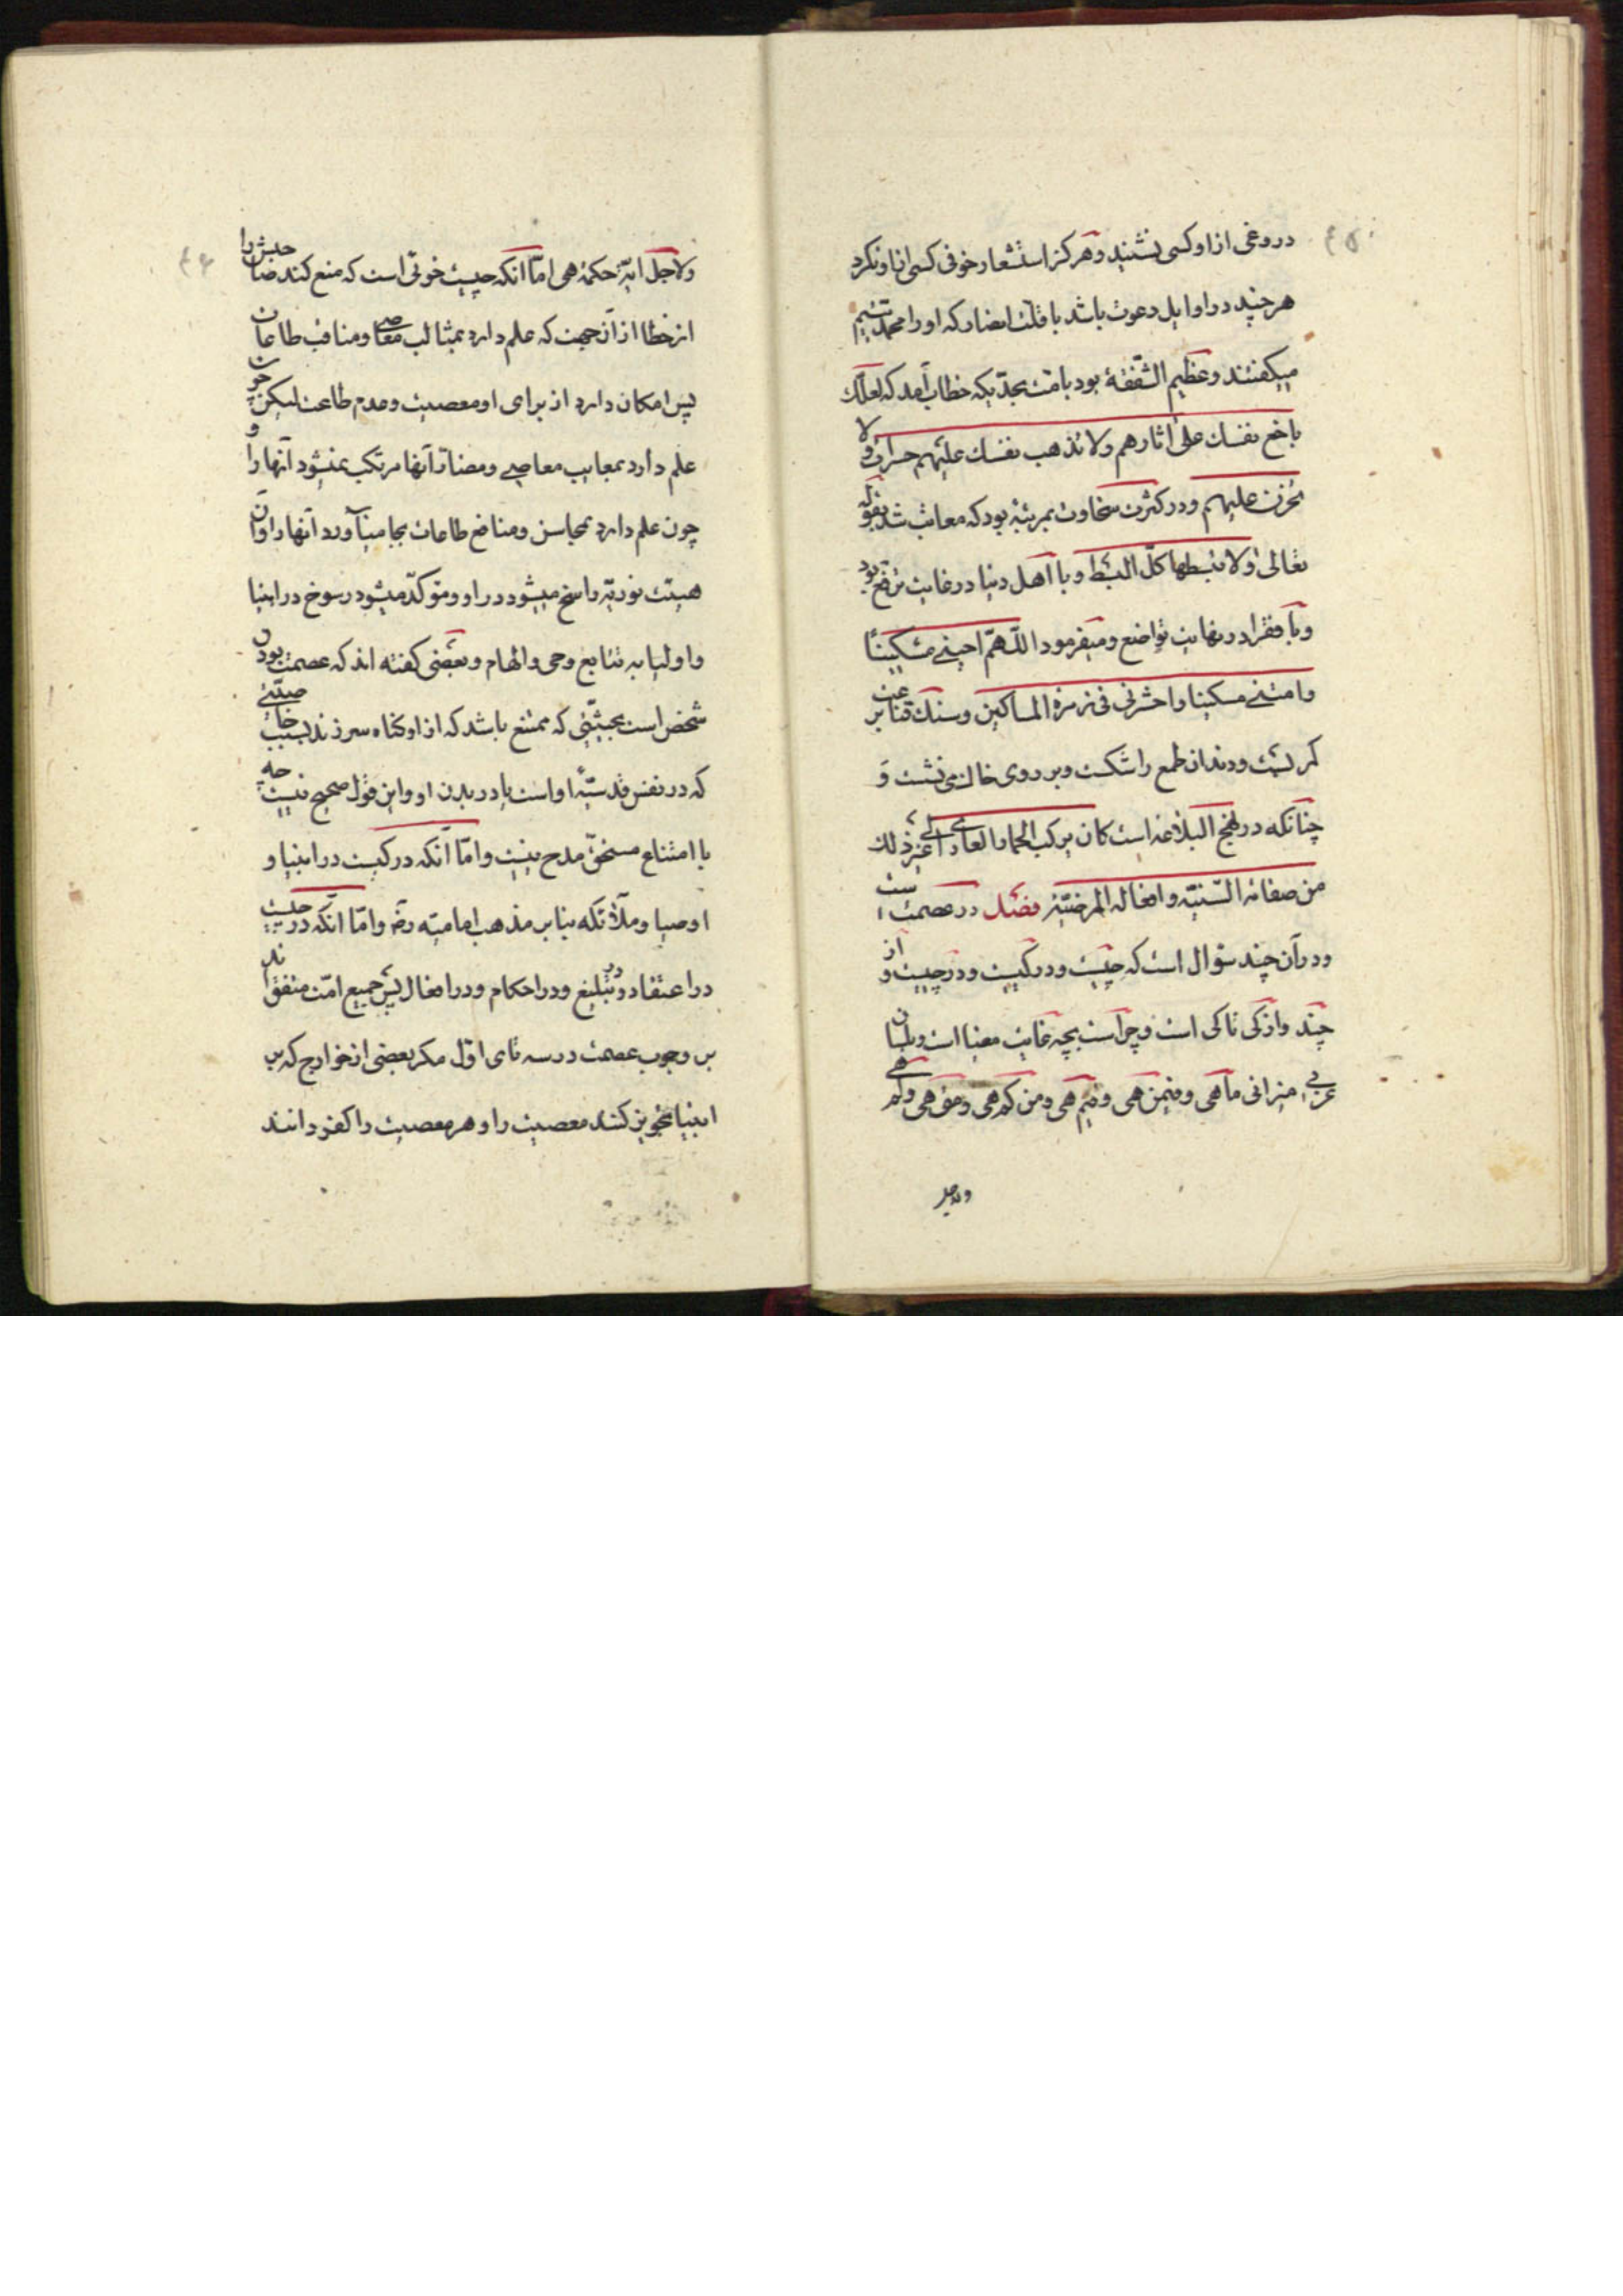 دروغی از او کسی نشنید و هرکز استشعار خوفی کسی از او نکرد
هرچند در اوایل دعوت باشد با قلت انصار که او را محمد یتیم
میکفتند و عظیم الشفقة بود بامت بحدیکه خطاب آمد که لعلک
باخع نفسک علی اثارهم ولا تذهب نفسک علیهم حسرات و لا
تحزن علیهم و در کثرت سخاوت بمرتبۀ بود که معاتب شد بقوله
تعالی ولا تبسطها کل البسط و با اهل دنیا در غایت ترفع بود
و با فقرا در نهایت تواضع و میفرمود اللّهمّ احینی مسکیناً
وامتنی مسکینا واحشرنی فی زمرة المساکین و سنک قناعت بر
کمر بست و دندان طمع را شکست و بر روی خاک می نشست و
چنانکه در نهج البلاغه است کان یرکب الحمار العاری الی غیر ذلک
من صفاته السّنیّه وافعاله المرضیّة فصل در عصمت است
و در آن چند سؤال است که چیست و در کیست و در چیست و از
چند و از کی تا کی است و چراست بچه غایت مغیا است و بلسان
عربی میزانی ما هی و فیمن هی و فیم هی و من کم هی و متی هی و لم هی
ولاجل
٤٦
ولاجل ایة حکمة هی امّا آنکه چیست خوفی است که منع کند صاحبش را
از خطا از آن جهت که علم دارد بمثالب معاصی و مناقب طاعات
پس امکان دارد از برای او معصیت و عدم طاعت لیکن چون
علم دارد بمعایب معاصی و مضار آنها مرتکب نمیشود آنها را و
چون علم دارد بمحاسن و منافع طاعات بجا میآورد آنها را و آن
هیئت نوریّه راسخ میشود در او و متوکد میشود رسوخ در انبیا
و اولیا به تتابع وحی و الهام و بعضی کفته اند که عصمت بودن
شخص است بحیثیّتی که ممتنع باشد که از او کناه سر زند بسبب خاصیّتی
که در نفس قدسیّۀ او است یا در بدن او و این قول صحیح نیست چه
با امتناع مستحقّ مدح نیست و امّا آنکه در کیست در انبیا و
اوصیا و ملآئکه بنا بر مذهب امامیّه رضه و امّا آنکه در چیست
در اعتقاد و در تبلیغ و در احکام و در افعال پس جمیع امّت متفقند
بر وجوب عصمت در سه تای اوّل مکر بعضی از خوارج که بر
انبیا تجویز کنند معصیت را و هر معصیت را کفر دانند